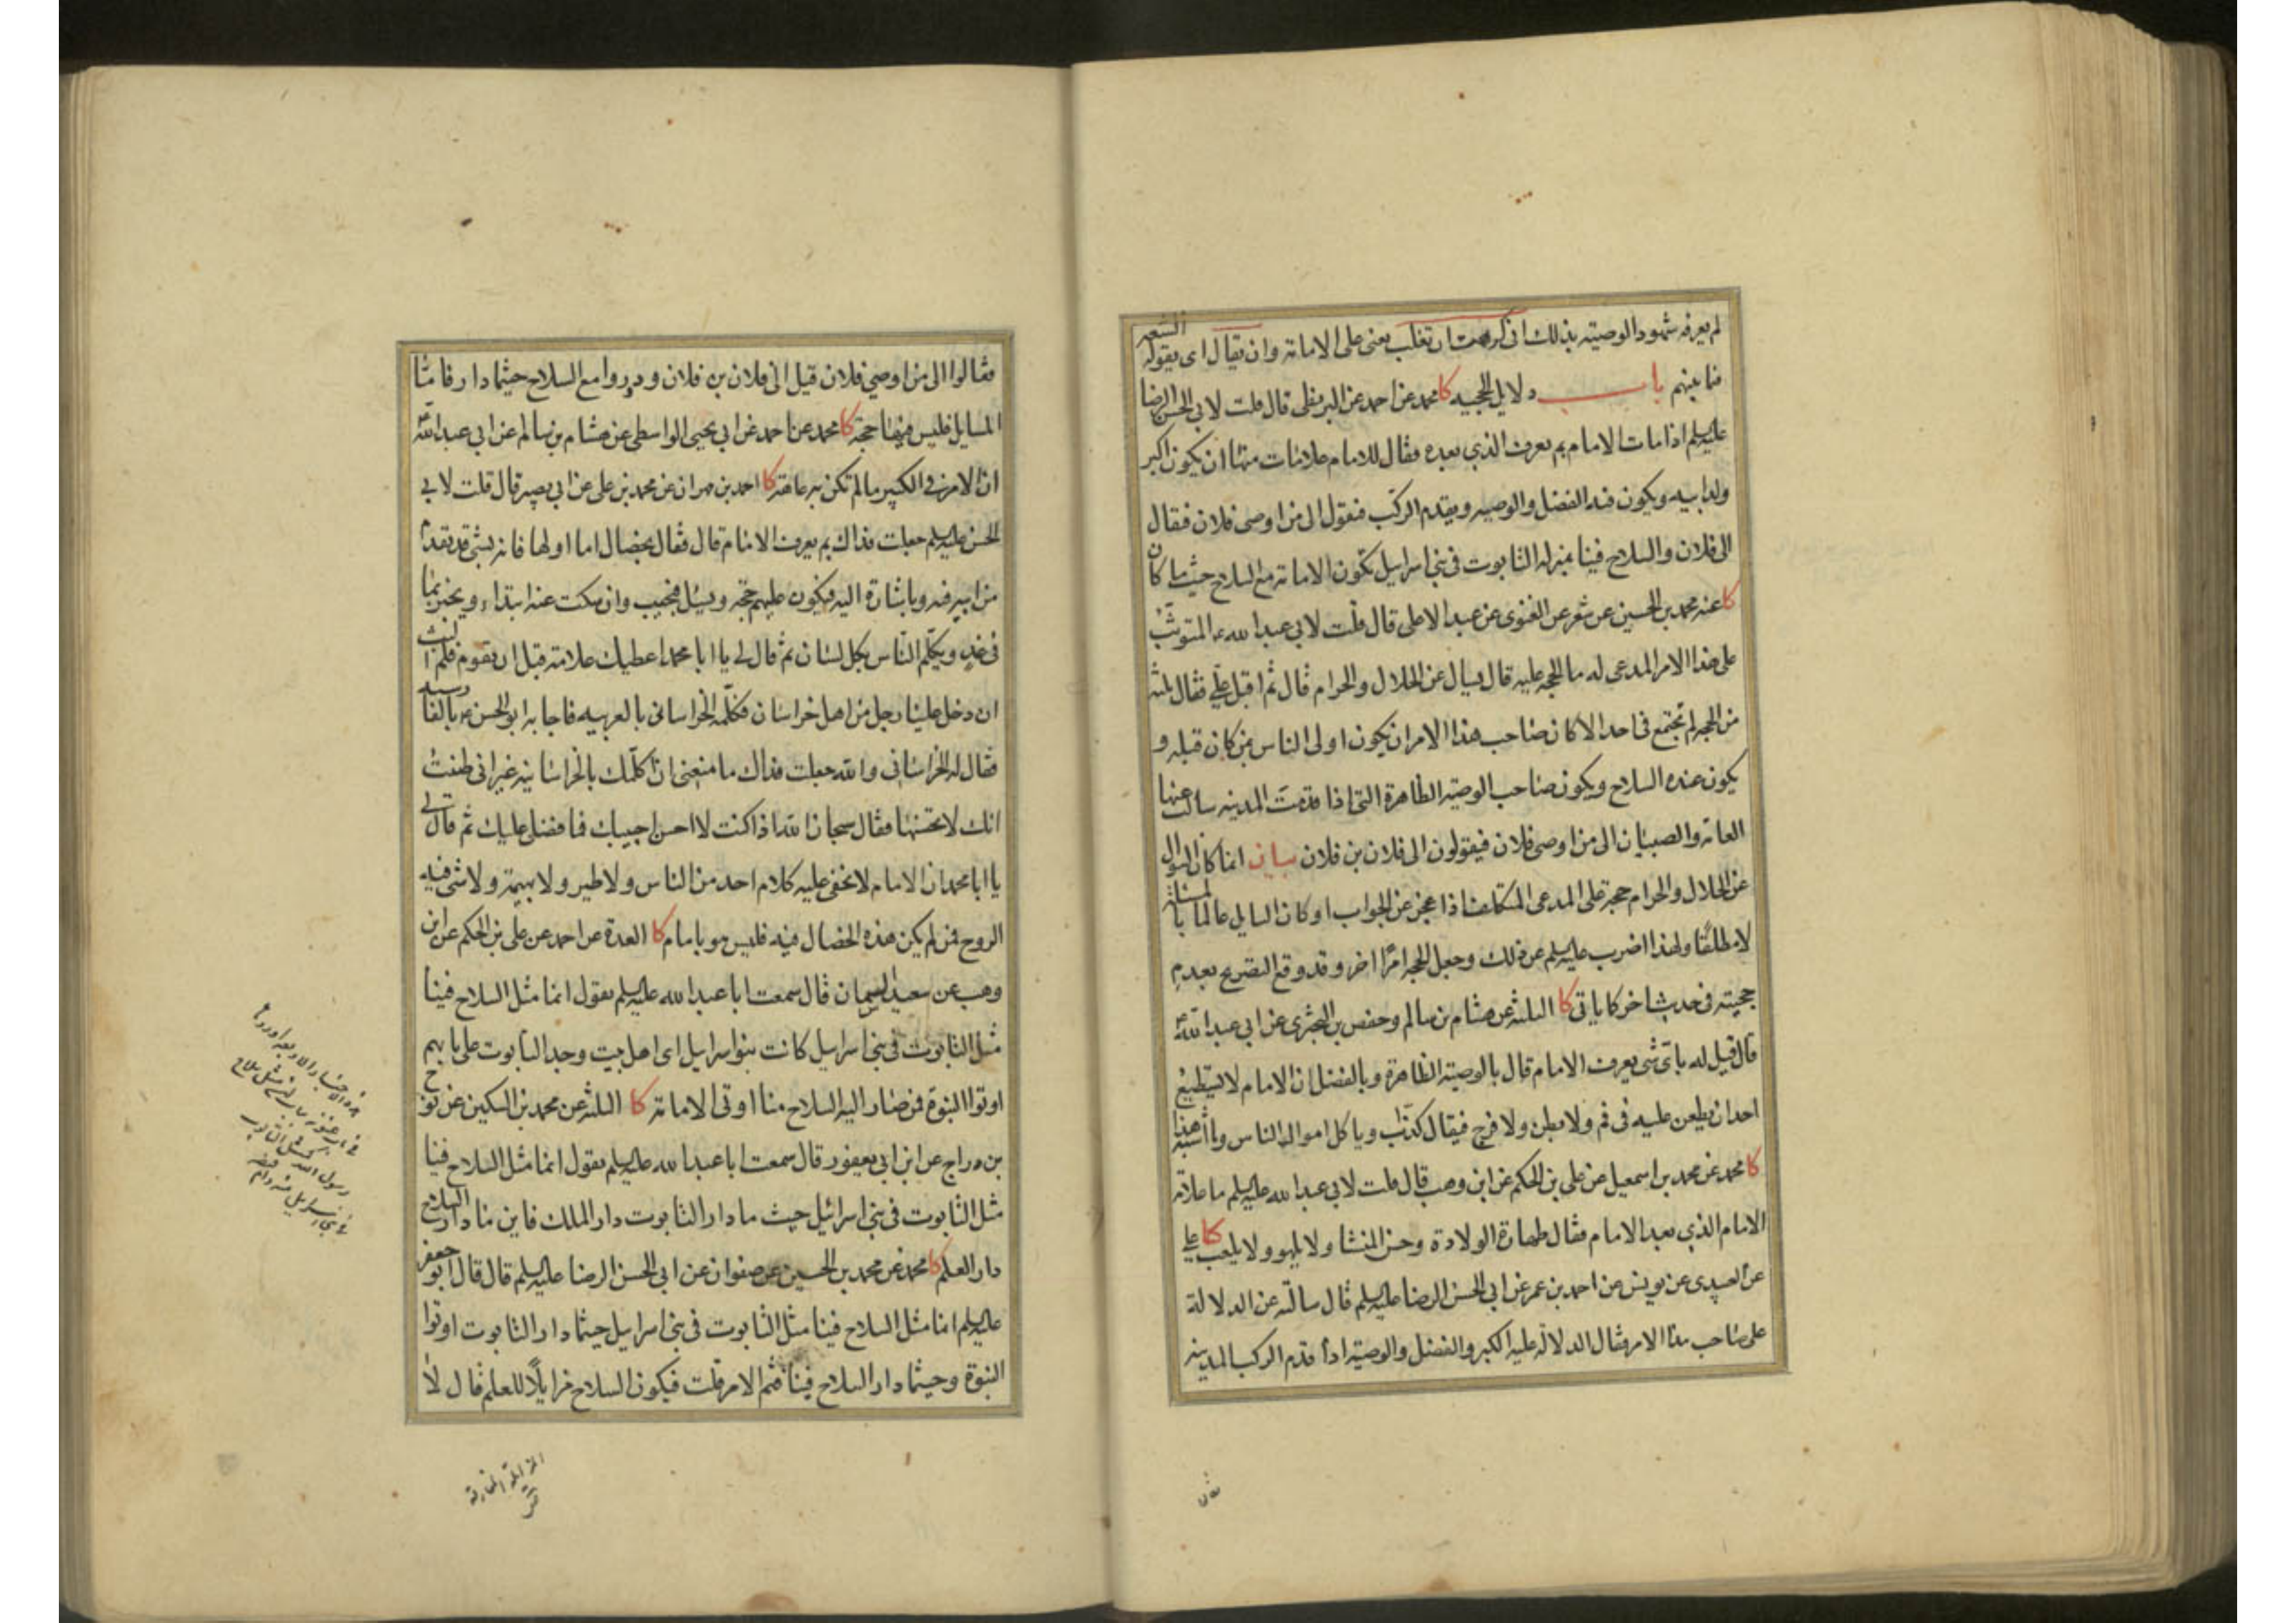 لم يعرفه شهود الوصيه بذلك انى كرهت ان تغلب يعنى على الامامة وان يقال اى يقوله الشيعه
فيما بينهم باب دلايل الحجيه كا محمد عن احمد عن البزنطى قال قلت لابى الحسن الرضا
عليه السلم اذا مات الامام بم يعرف الذي بعده فقال للامام علامات منها ان يكون اكبر
ولد ابيه ويكون فيه الفضل والوصيه ويقدم الركب فيقول الى من اوصى فلان فيقال
الى فلان والسلاح فينا بمنزله التابوت فى بنى اسرايل تكون الامامة مع السلاح حيث ما كان
كا عنه محمد بن الحسين عن شعر عن الغنوى عن عبد الاعلى قال قلت لابى عبد الله ع المتوثب
على هذا الامر المدعى له ما الحجه عليه قال يسال عن الحلال والحرام قال ثم اقبل على فقال ثلثه
من الحجه لم تجتمع فى احد الا كان صاحب هذا الامر ان يكون اولى الناس بمن كان قبله و
يكون عنده السلاح ويكون صاحب الوصيه الظاهرة التى اذا قدمت المدينه سالت عنها
العامة والصبيان الى من اوصى فلان فيقولون الى فلان بن فلان بيان انما كان السوال
عن الحلال والحرام حجة على المدعى المتكلف اذا عجز عن الجواب او كان السايل عالما بالمسئلة
لا مطلقا ولهذا اضرب عليه السلم عن ذلك وجعل الحجه امرا اخر وقد وقع التصريح بعدم
حجيته فى حديث اخر كما ياتى كا الثلثه عن هشام بن سالم وحفص بن البخترى عن ابي عبد الله ع
قال قيل له باى شى يعرف الامام قال بالوصية الظاهرة وبالفضل ان الامام لا يستطيع
احد ان يطعن عليه فى فم ولا بطن ولا فرج فيقال كذاب وياكل اموال الناس وما اشبه هذا
كا محمد عن محمد بن اسمعيل عن على بن الحكم عن ابن وهب قال قلت لابى عبد الله عليه السلم ما علامة
الامام الذي بعد الامام فقال طهارة الولادة وحسن المنشا ولا يلهو ولا يلعب كا على
عن العبيدى عن يونس عن احمد بن عمر عن ابى الحسن الرضا عليه السلم قال سالته عن الدلالة
على صاحب هذا الامر فقال الدلالة عليه الكبر والفضل والوصية اذا قدم الركب المدينه
فقالوا الى من اوصى فلان قيل الى فلان بن فلان ودوروا مع السلاح حيثما دار فاما
المسايل فليس فيها حجة كا محمد عن احمد عن ابى يحيى الواسطى عن هشام بن سالم عن ابى عبد الله ع
ان الامر فى الكبير ما لم تكن به عاهة كا احمد بن مهران عن محمد بن على عن ابى بصير قال قلت لابى
الحسن عليه السلم جعلت فداك بم يعرف الامام قال فقال بخصال اما اولها فانه بشى قد تقدم
من ابيه فيه وباشارة اليه فيكون عليهم حجة ويسئل فيجيب وان سكت عنه ابتداء ويخبر بما
فى غد ويكلم الناس بكل لسان ثم قال لى يا ابا محمد اعطيك علامة قبل ان تقوم فلم البث
ان دخل علينا رجل من اهل خراسان فكلمه الخراسانى بالعربيه فاجابه ابو الحسن ع بالفارسيه
فقال له الخراسانى والله جعلت فداك ما منعنى ان اكلمك بالخراسانيه غير انى ظننت
انك لا تحسنها فقال سبحان الله اذا كنت لا احسن اجيبك فما فضلى عليك ثم قال لى
يا ابا محمد ان الامام لا يخفى عليه كلام احد من الناس ولا طير ولا بهيمة ولا شى فيه
الروح فمن لم يكن هذه الخصال فيه فليس هو بامام كا العدة عن احمد عن على بن الحكم عن ابن
وهب عن سعيد السمان قال سمعت ابا عبد الله عليه السلم يقول انما مثل السلاح فينا
مثل التابوت فى بنى اسرايل كانت بنو اسرايل اى اهل بيت وجد التابوت على بابهم
اوتوا النبوة فمن صار اليه السلاح منا اوتى الامامة كا الثلثه عن محمد بن السكين عن نوح
بن دراج عن ابن ابى يعفور قال سمعت ابا عبد الله عليه السلم يقول انما مثل السلاح فينا
مثل التابوت فى بنى اسرائيل حيث ما دار التابوت دار الملك فاين ما دار السلاح
دار العلم كا محمد عن محمد بن الحسين عن صفوان عن ابى الحسن الرضا عليه السلم قال قال ابو جعفر
عليه السلم انما مثل السلاح فينا مثل التابوت فى بنى اسرايل حيثما دار التابوت اوتوا
النبوة وحيثما دار السلاح فينا فثم الامر قلت فيكون السلاح مزايلا للعلم قال لا
المزايلة المفارقة